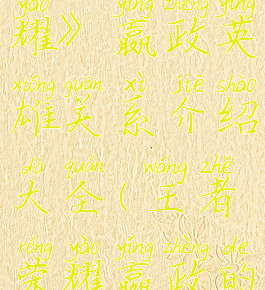 yào yíng zhèng yīng
耀》 嬴政英
xióng guān xì jiè shào
雄关系介绍
dà quán wáng zhě
大全(王者
róng yào yíng zhèng de
荣耀嬴政的